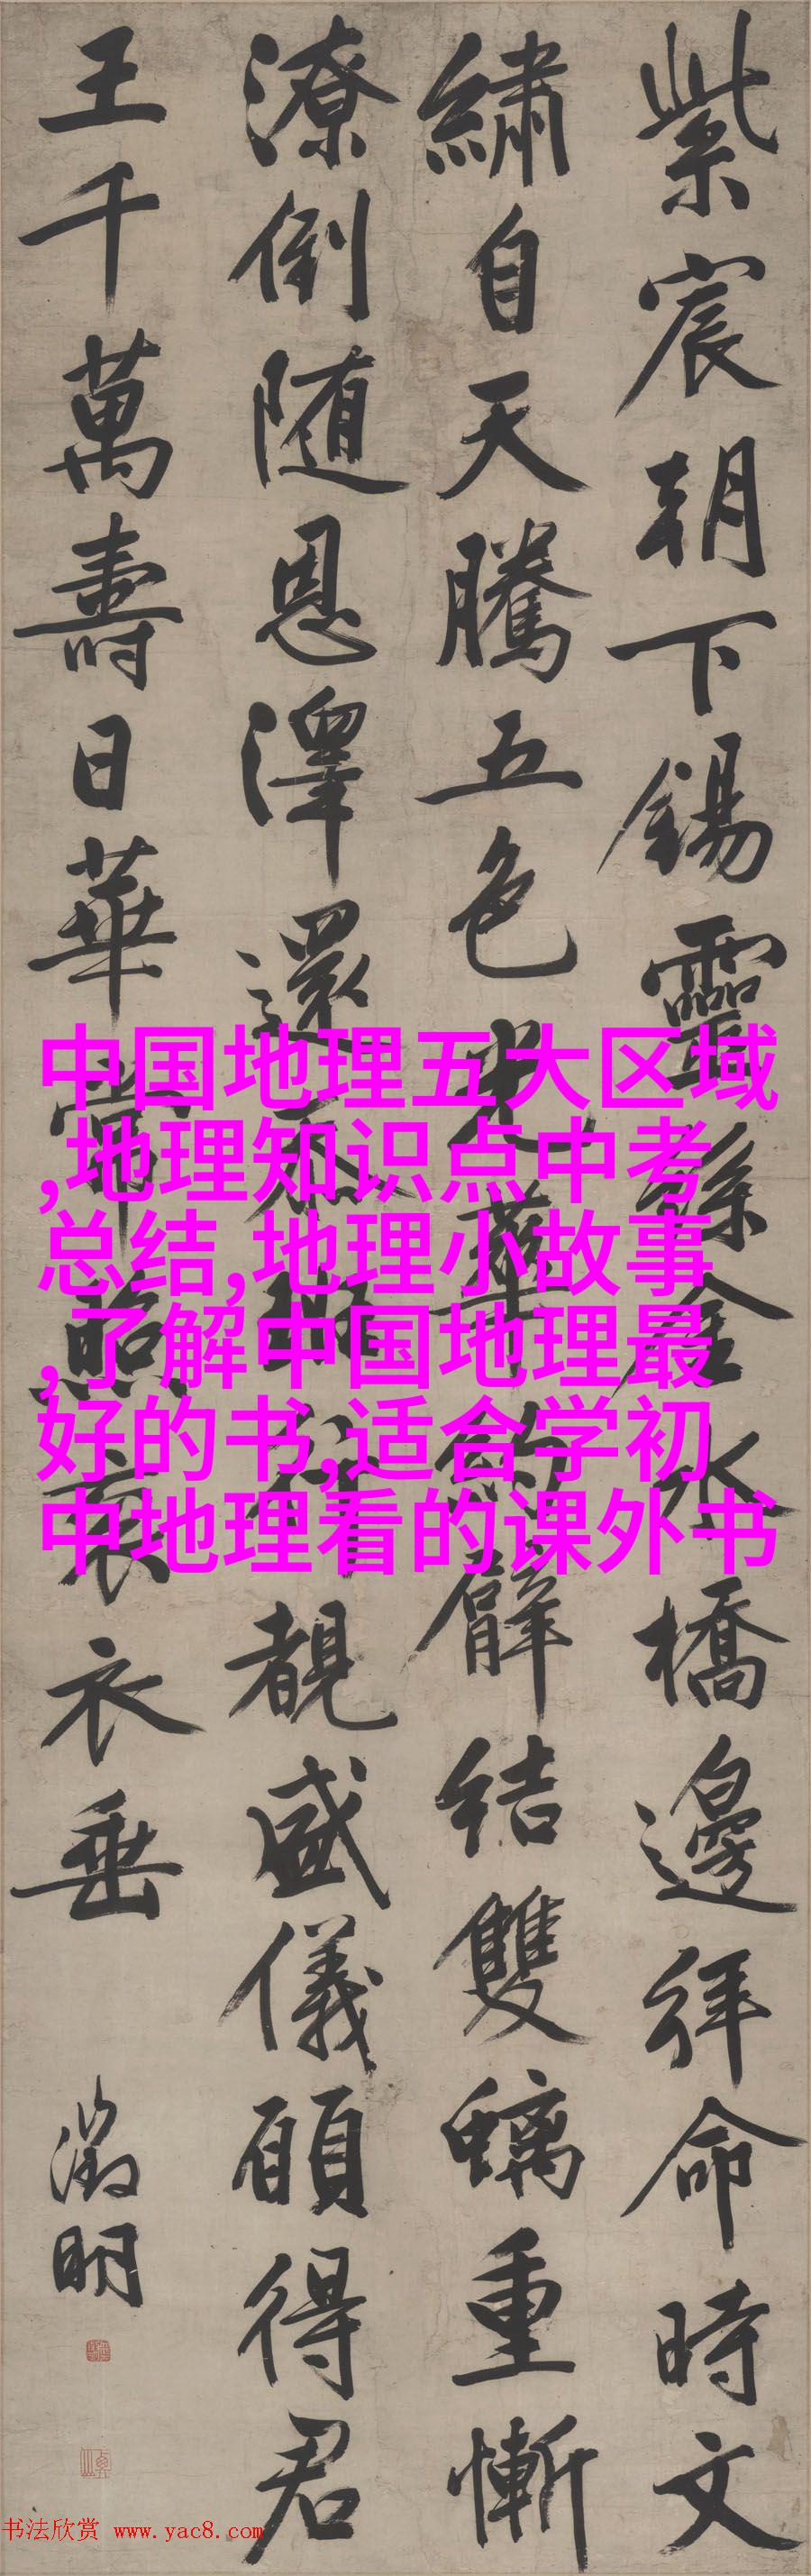 紫宸朝下錫靈絲金水橋邊拜命時文
繡自天騰五色光華約臂結雙螭重慚
潦倒随恩澤還忝班行覩盛儀願得君
王千萬壽日華常照袞衣垂
徵明
中国地理五大区域
,地理知识点中考
总结,地理小故事
,了解中国地理最
好的书,适合学初
中地理看的课外书
书法欣赏 www.yac8.com